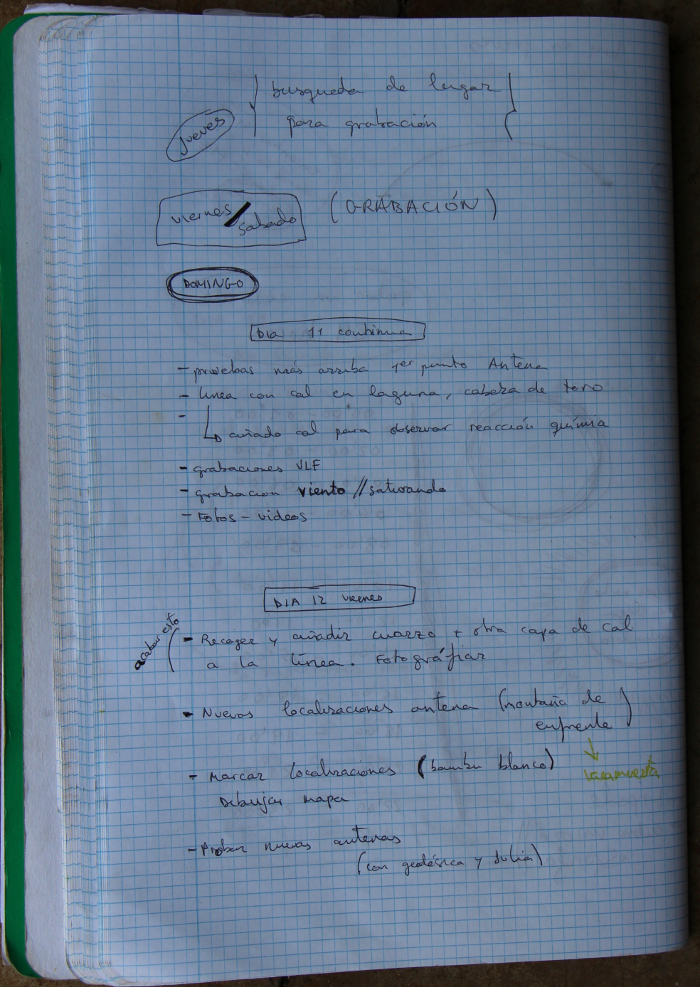 busqueda de lugar
para grabación
jueves
viernes/sabado
(GRABACIÓN)
DOMINGO
DIA 11 continua
- pruebas más arriba 1er punto Antena
- línea con cal en laguna, cabeza de toro
-
↳ añado cal para observar reacción química
- grabaciones VLF
- grabacion viento // saturando
- Fotos - videos
DIA 12 viernes
acabar esto
- Recoger y añadir cuarzo + otra capa de cal
a la línea. Fotografiar
- Nuevas localizaciones antena (montaña de
enfrente)
- Marcar localizaciones (bambu blanco)
Dibujar mapa
- Probar nuevas antenas
(con geodésica y